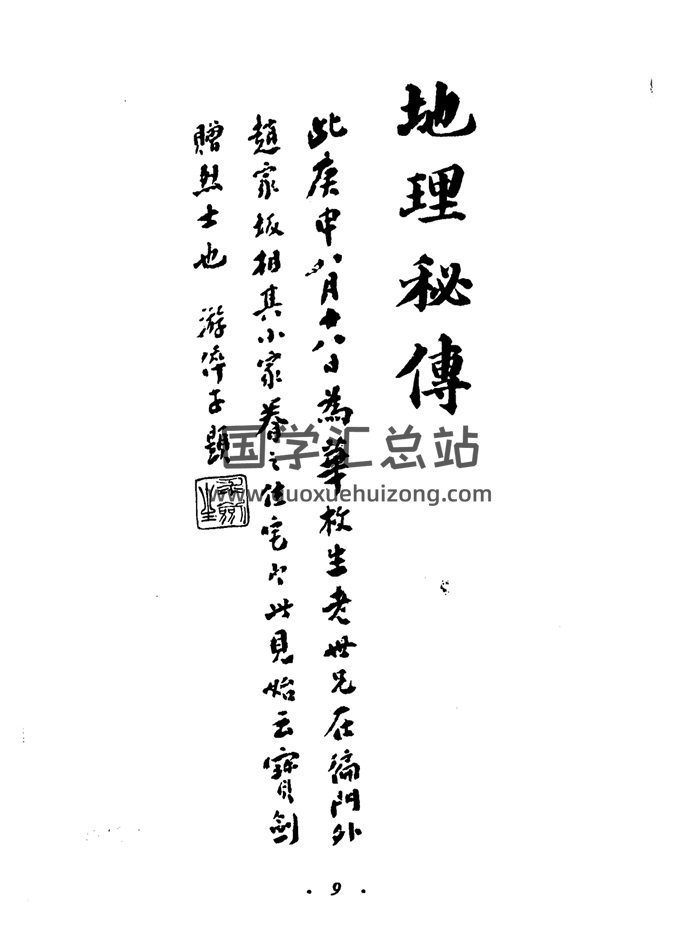 地理秘傳
此庚申八月十八日為華枚生老世兄在偏門外
趙家坂相其小家眷之住宅出此見始云寶劍
贈烈士也 游儕子題
国学汇总站
www.guoxuehuizong.com
· 9 ·